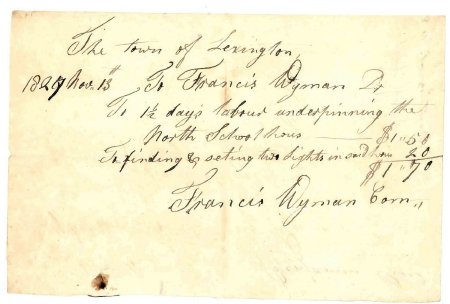 The town of Lexington
1827 Nov. 13th To Francis Wyman Dr
To 1½ day's labour underpinning the
North Schoolhous $1"50
To finding & seting two lights in said hous 20
$1"70
Francis Wyman Com,,